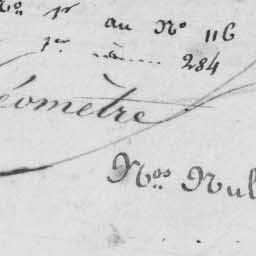 No 1er au No 116
1er id. 284
éomètre
Nos Nul